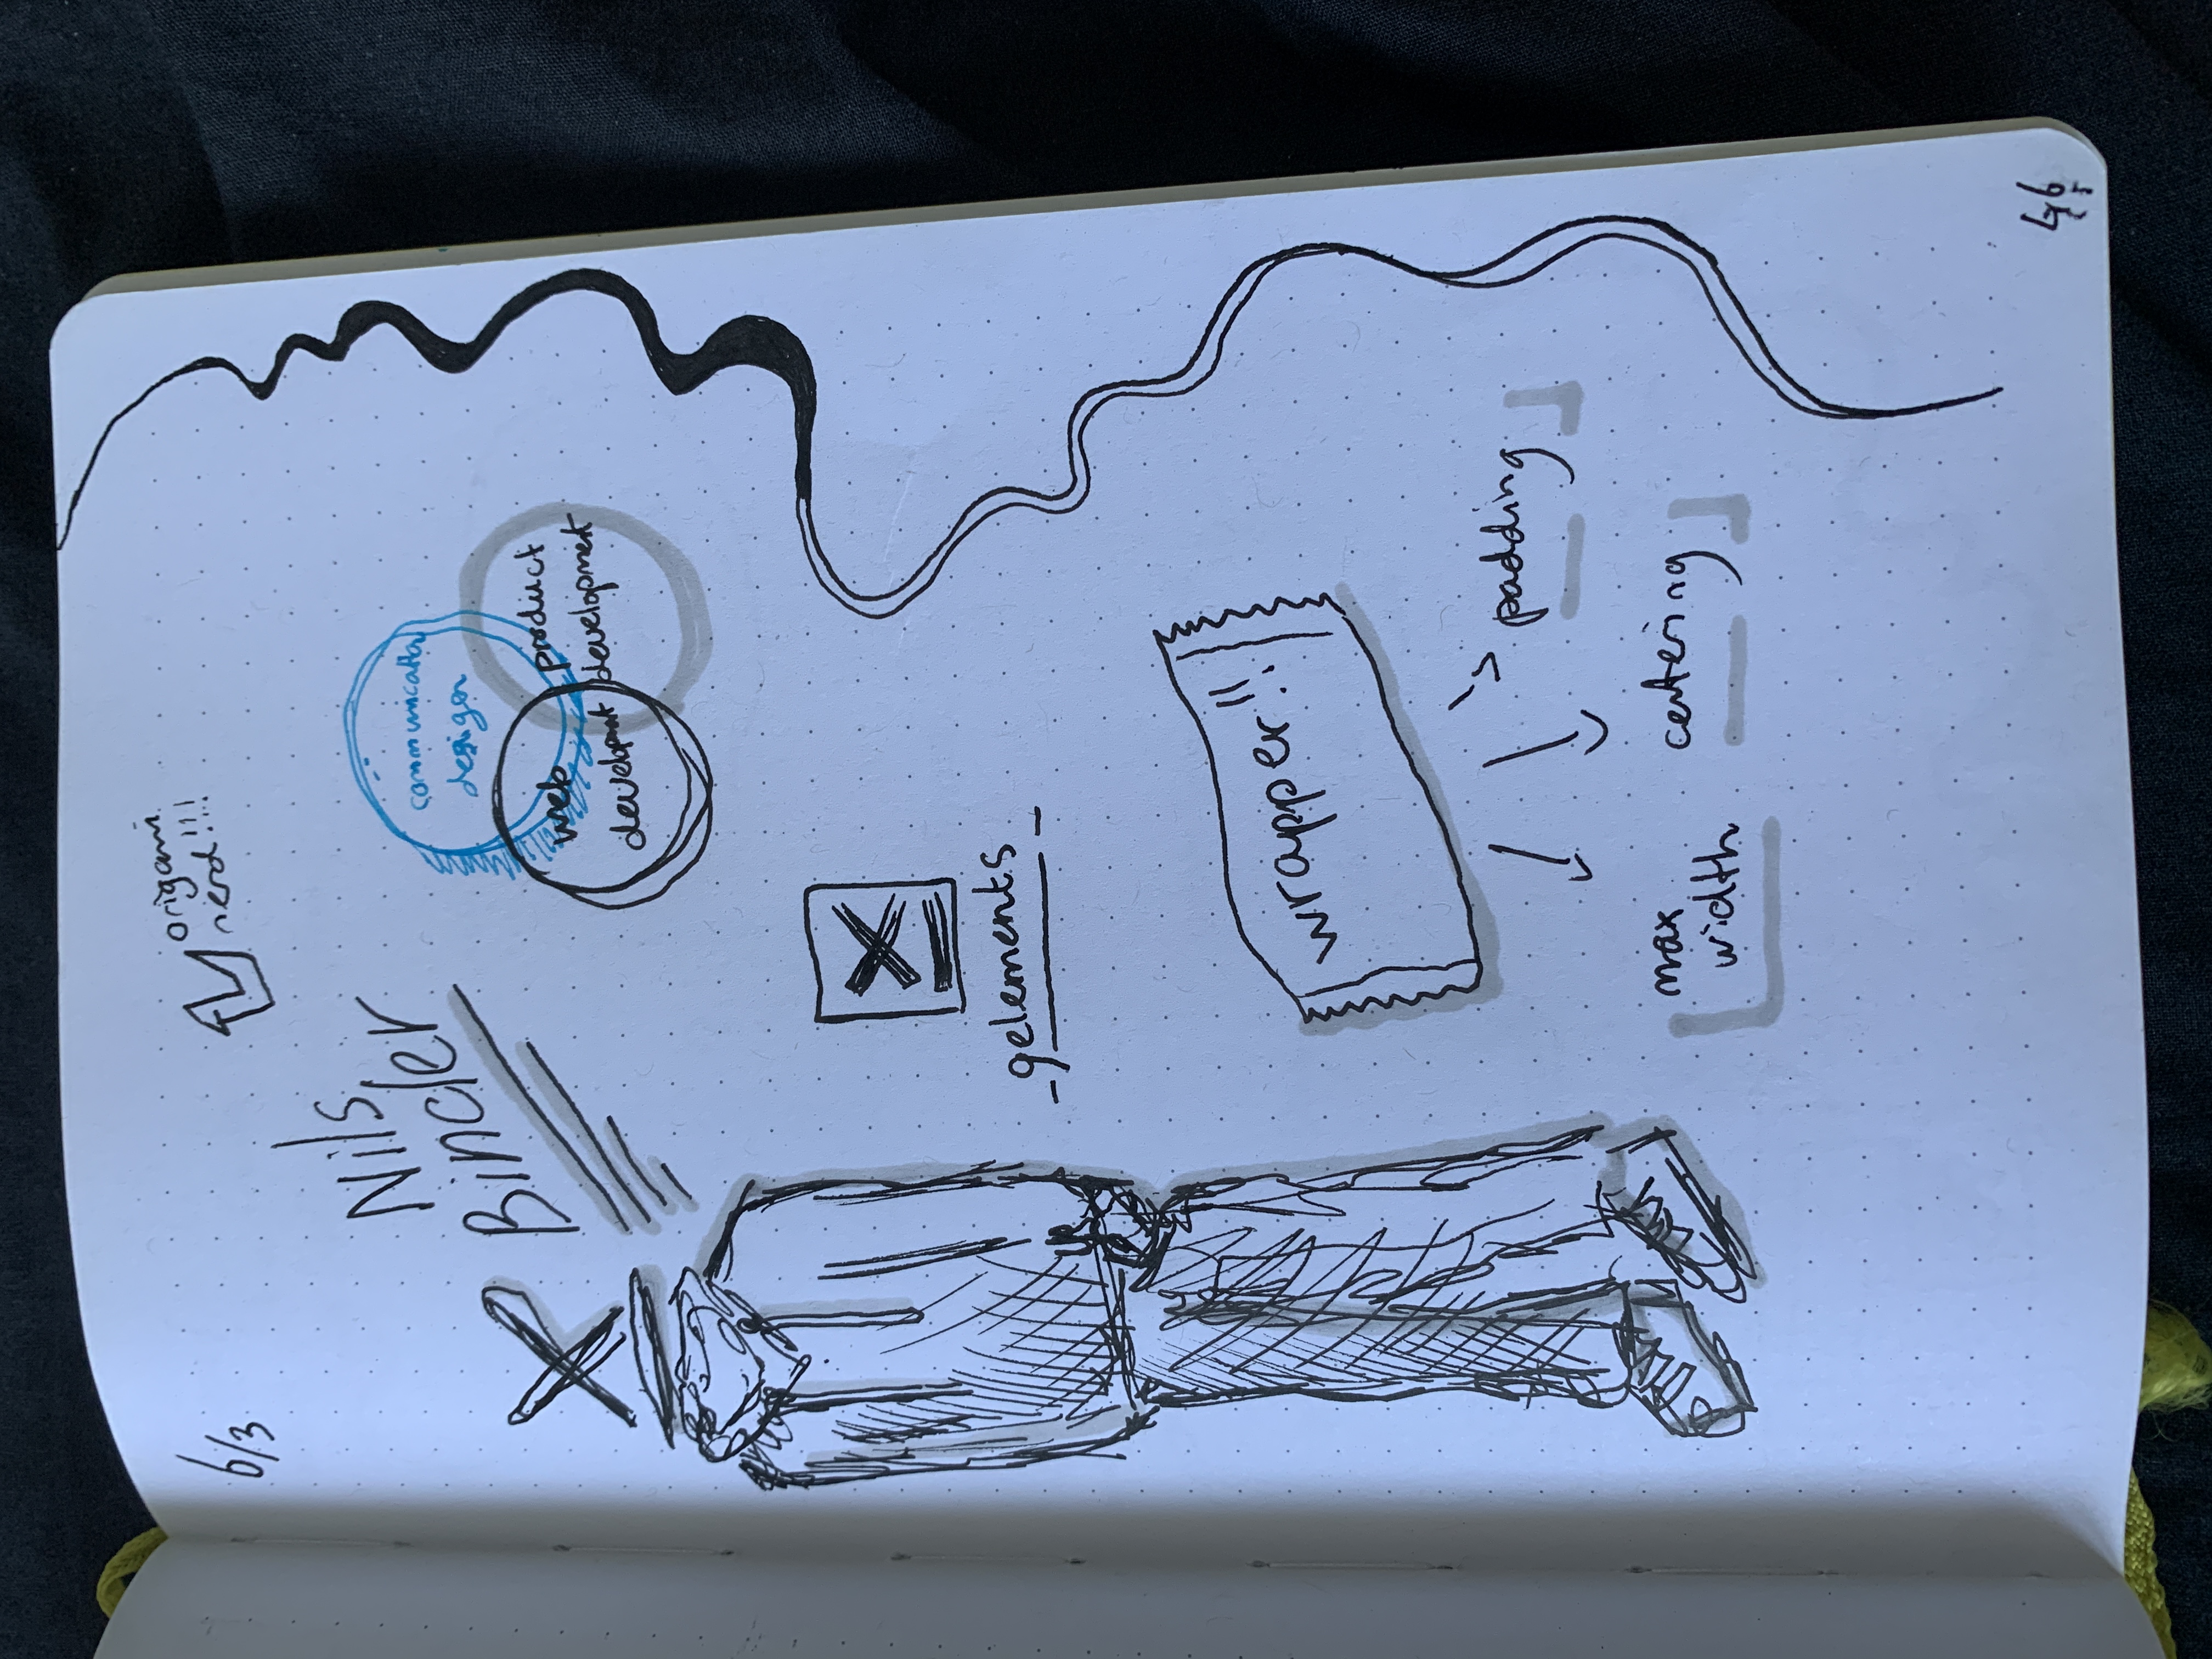 6/3
origami
nerd!!!
Nils
Binder
communication
design
web
development
product
development
9elements
wrapper!!
padding
max
width
centering
46